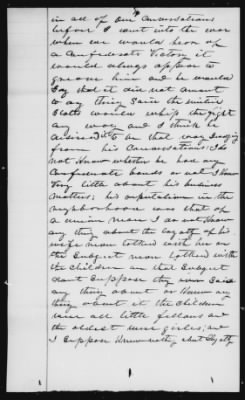 in all of our conversations
before I went into the war
when we would hear of
a Confederate victory it
would always appear to
grieve him and he would
say that it did not amount
to any thing Said the united
States would whip the fight
any way and I think he
to be that way judging
from his Conversations; I do
not know whether he had any
Confederate bonds or not I know
very little about his business
matters; his reputation in the
neighborhood was that of
a union man I do not know
any thing about the loyalty of his
wife never talked with her on
the Subject nor talked with
the children on that Subject
dont Suppose they ever Said
any thing about or knew any
thing about it the children
were all little fellows and
the oldest were girls; and
I Suppose knew nothing about loyalty